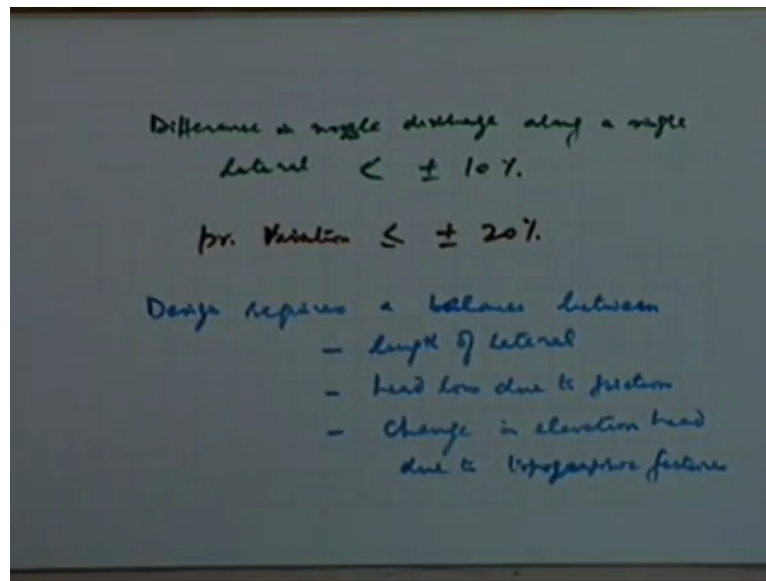 Difference in nozzle discharge along a single
lateral < ± 10 %.
pr. Variation ≤ ± 20 %.
Design requires a balance between
– length of lateral
– head loss due to friction
– Change in elevation head
due to topographic features